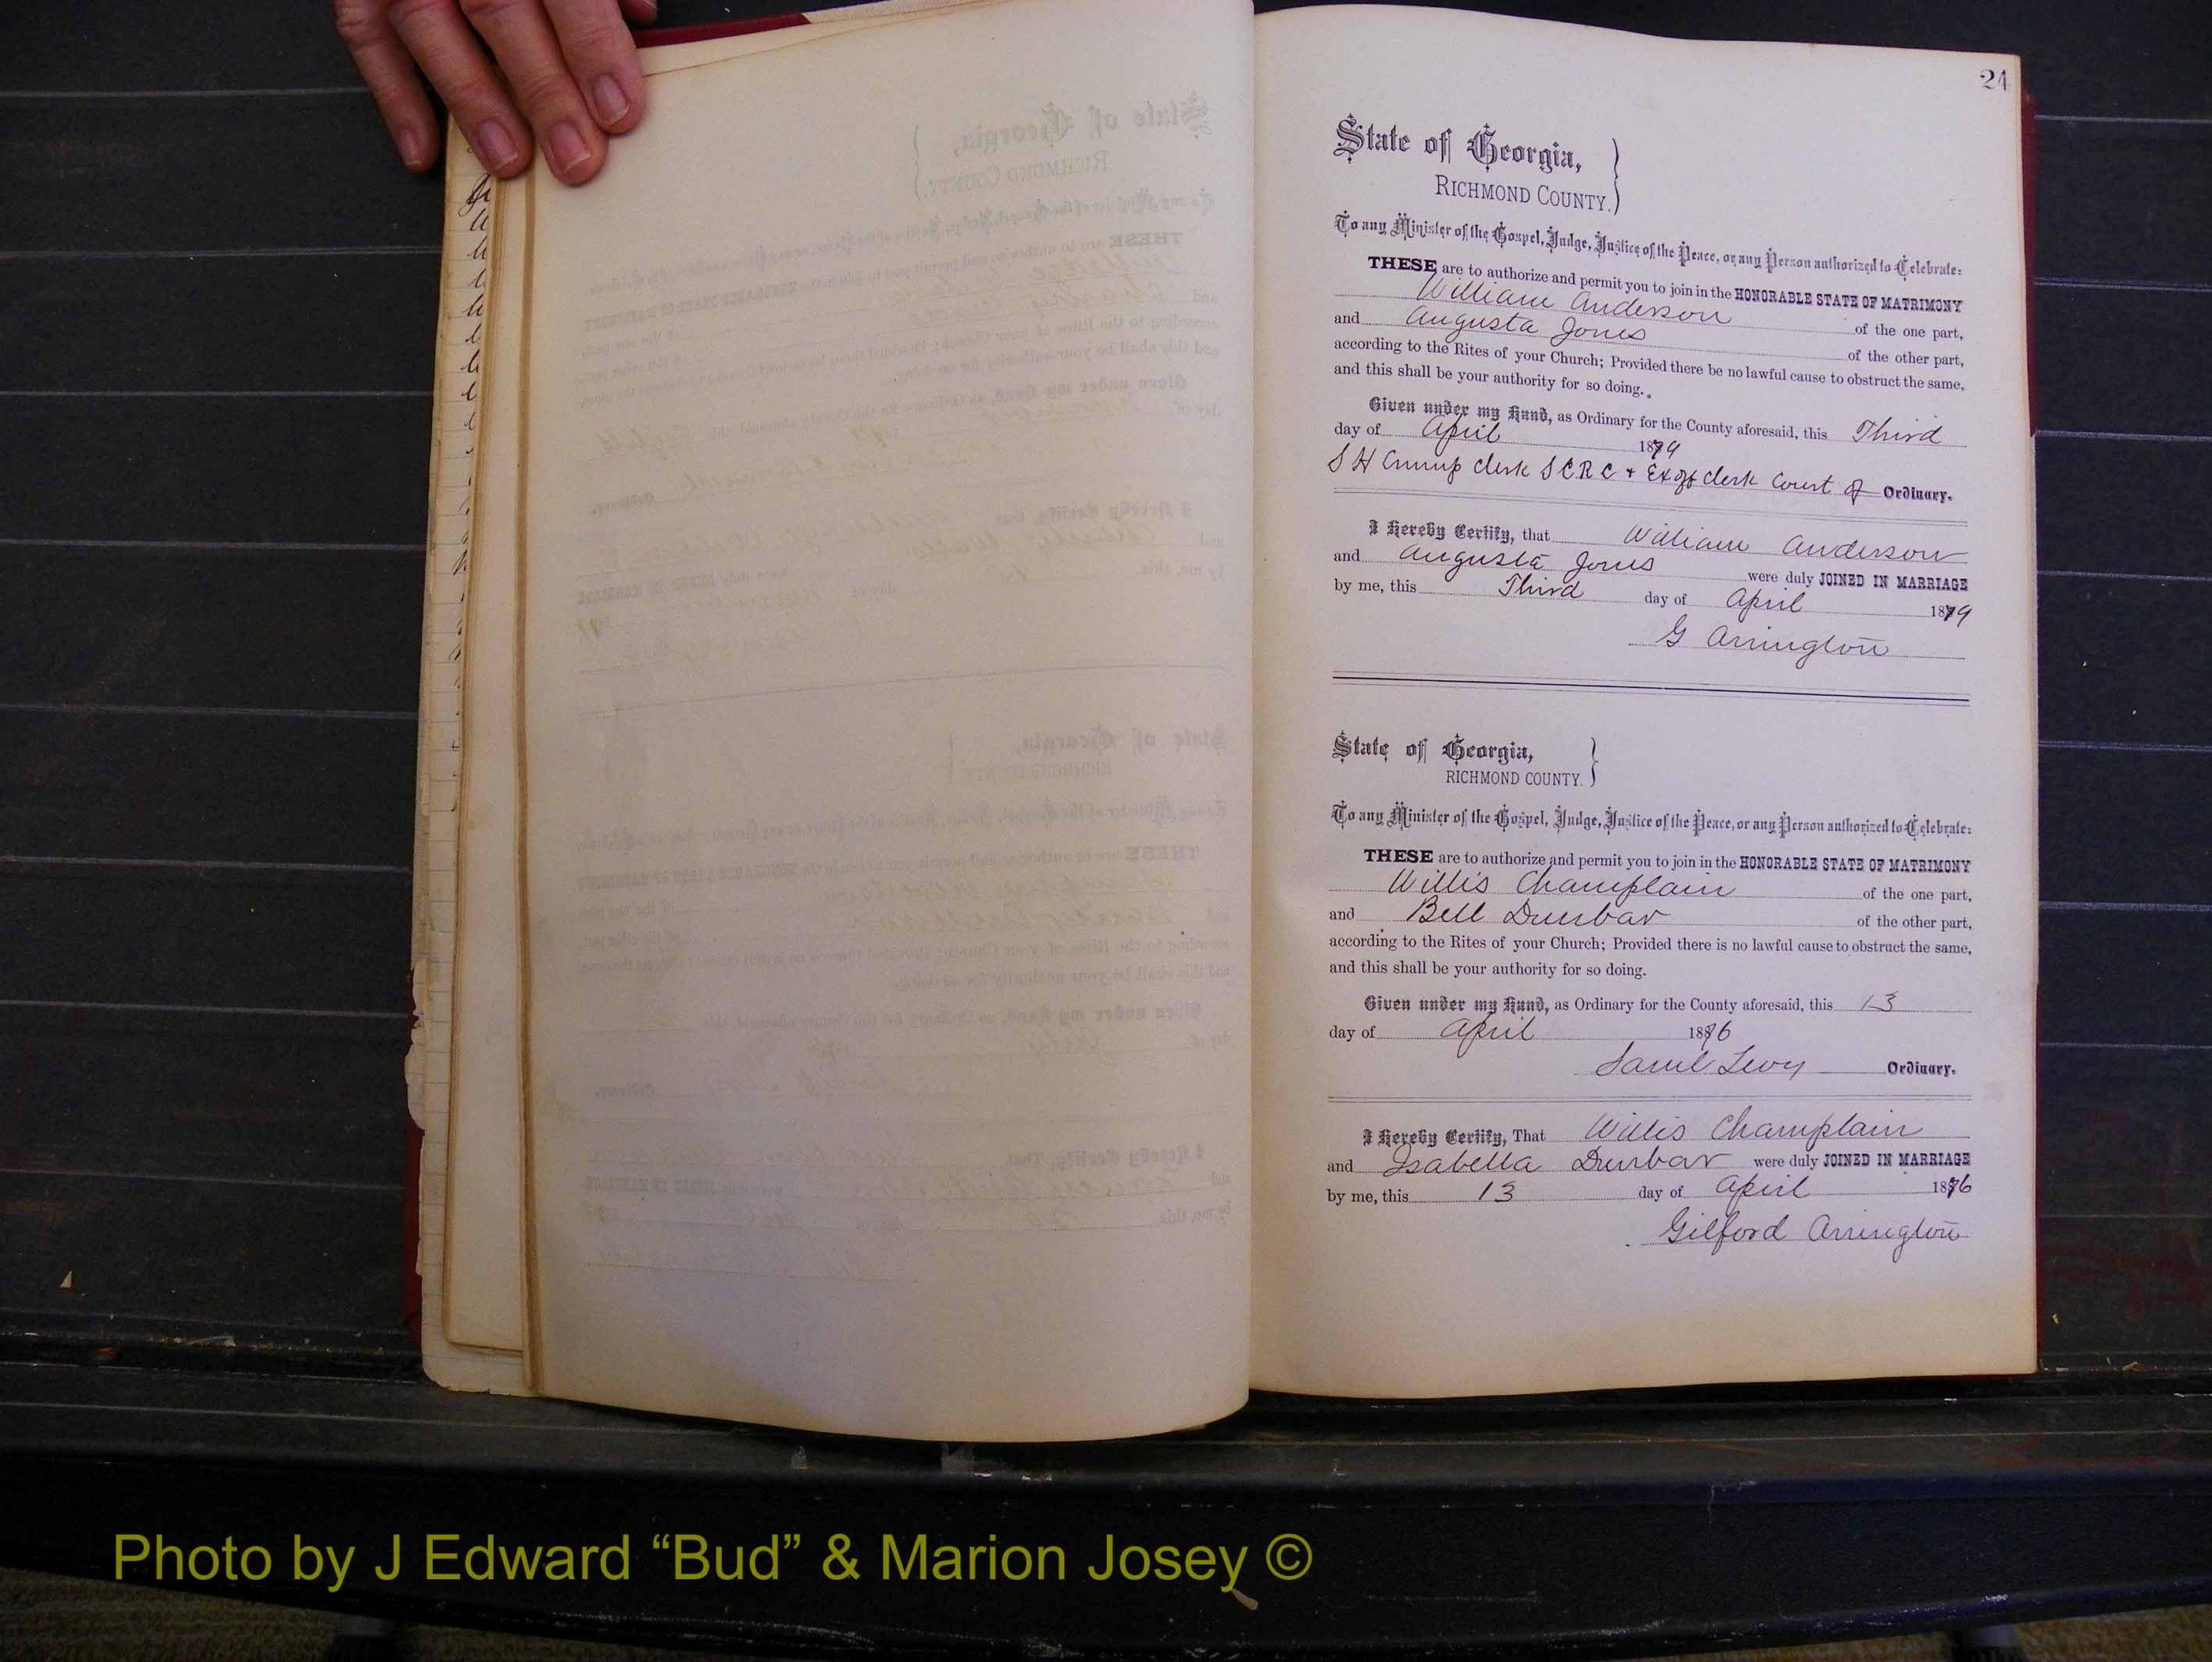 24
State of Georgia,
RICHMOND COUNTY.
To any Minister of the Gospel, Judge, Justice of the Peace, or any Person authorized to Celebrate:
THESE are to authorize and permit you to join in the HONORABLE STATE OF MATRIMONY
William Anderson of the one part,
and Augusta Jones of the other part,
according to the Rites of your Church; Provided there be no lawful cause to obstruct the same,
and this shall be your authority for so doing.
Given under my Hand, as Ordinary for the County aforesaid, this Third
day of April 1879
S H Crump clerk S C R C + Ex off clerk Court of Ordinary.
I Hereby Certify, that William Anderson
and Augusta Jones were duly JOINED IN MARRIAGE
by me, this Third day of April 1879
G Arrington
State of Georgia,
RICHMOND COUNTY.
To any Minister of the Gospel, Judge, Justice of the Peace, or any Person authorized to Celebrate:
THESE are to authorize and permit you to join in the HONORABLE STATE OF MATRIMONY
Willis Champlain of the one part,
and Bell Dunbar of the other part,
according to the Rites of your Church; Provided there is no lawful cause to obstruct the same,
and this shall be your authority for so doing.
Given under my Hand, as Ordinary for the County aforesaid, this 13
day of April 1876
Saml Levy Ordinary.
I Hereby Certify, That Willis Champlain
and Isabella Dunbar were duly JOINED IN MARRIAGE
by me, this 13 day of April 1876
Gilford Arrington
Photo by J Edward “Bud” & Marion Josey ©